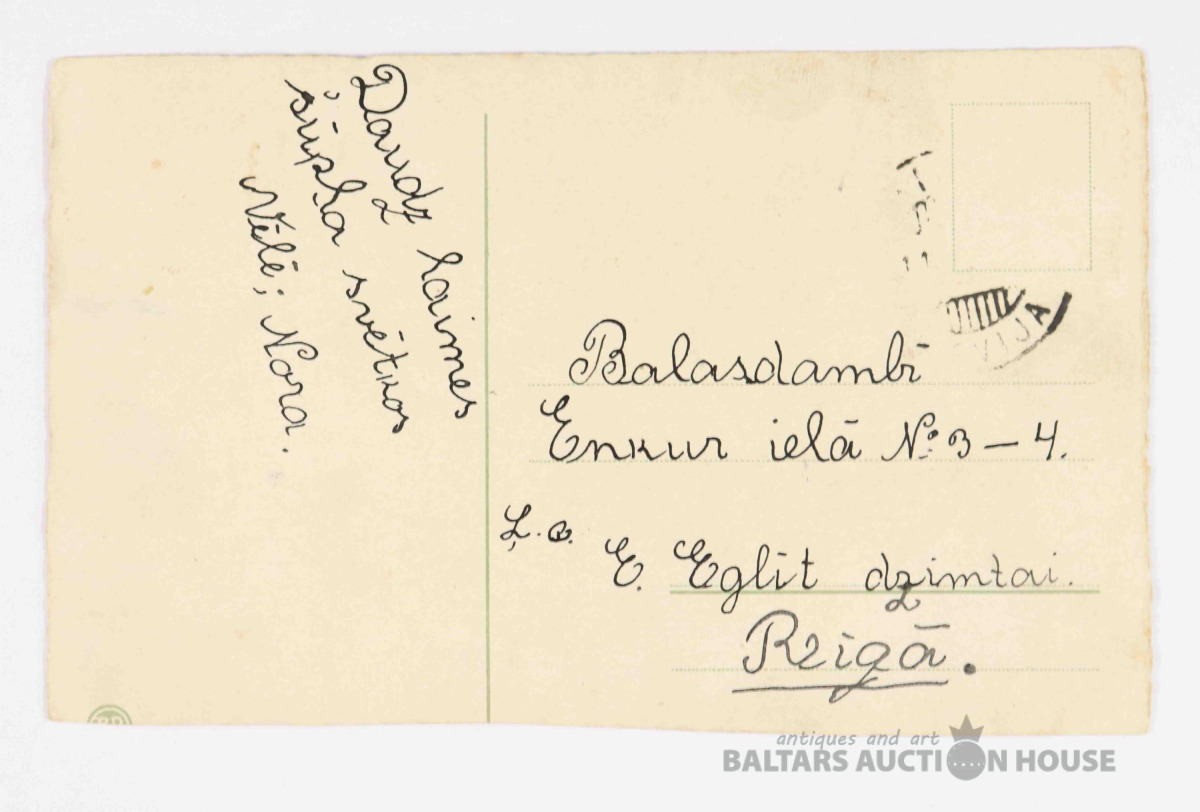 Daudz laimes
šūpļa svētkos
Vēlē; Nora.
VIJA
Balasdambī
Enkur ielā № 3 – 4.
Ļ. c.
E. Eglit dzimtai.
Rīgā.
antiques and art
BALTARS AUCTION HOUSE